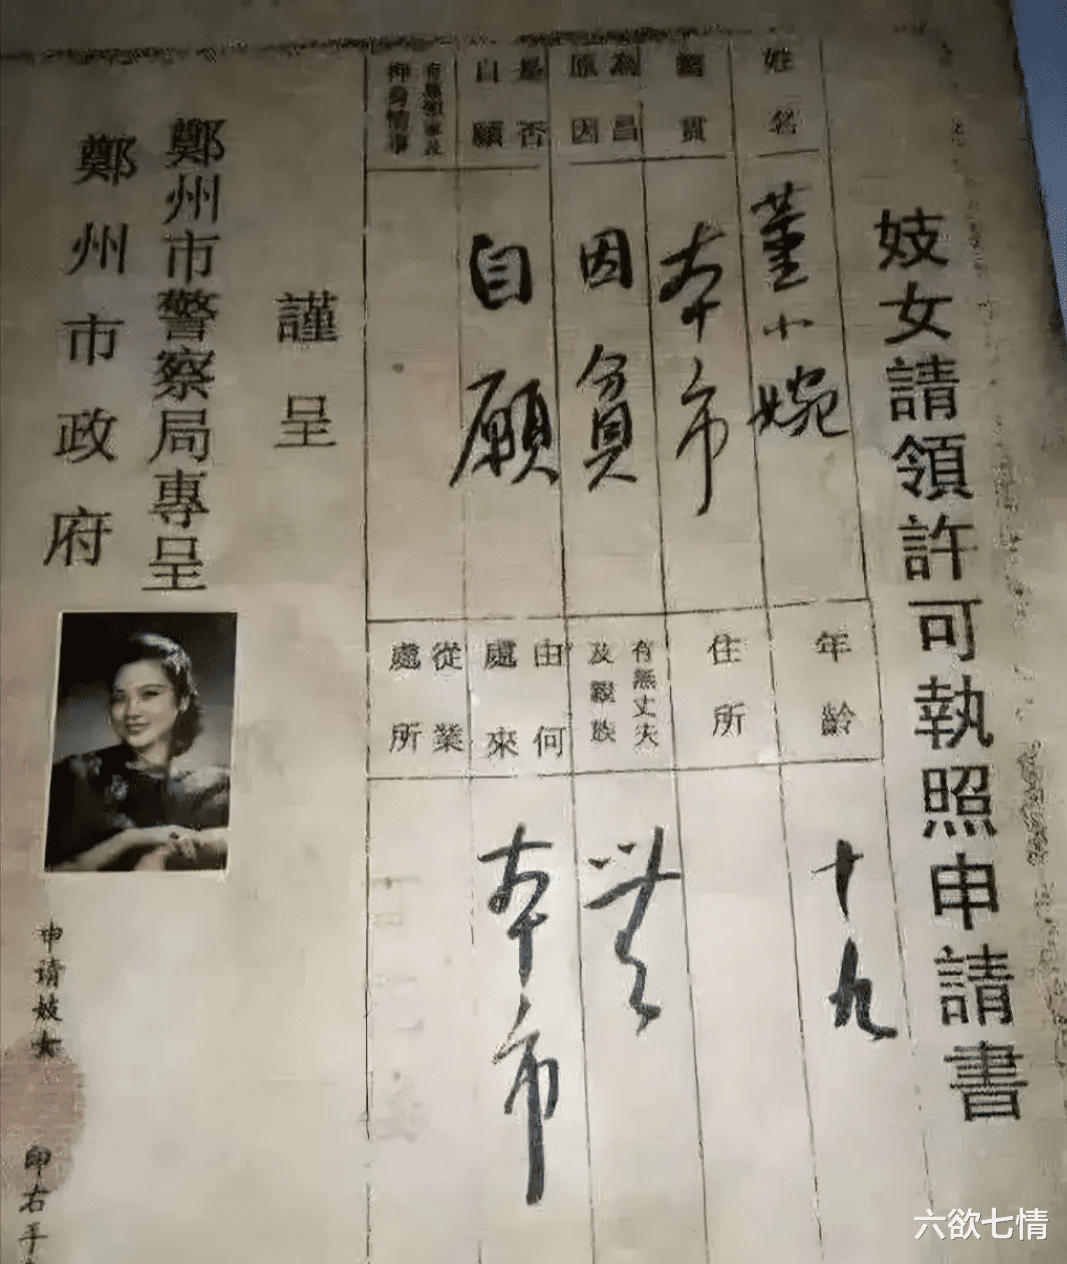 妓女請領許可執照申請書
姓名
董小婉
年齡
十九
籍貫
本市
住所
為娼原因
因貧
有無丈夫及親族
是否自願
自願
由何處來
本市
從業處所
謹呈
鄭州市警察局專呈
鄭州市政府
申请妓女
印右手
六欲七情